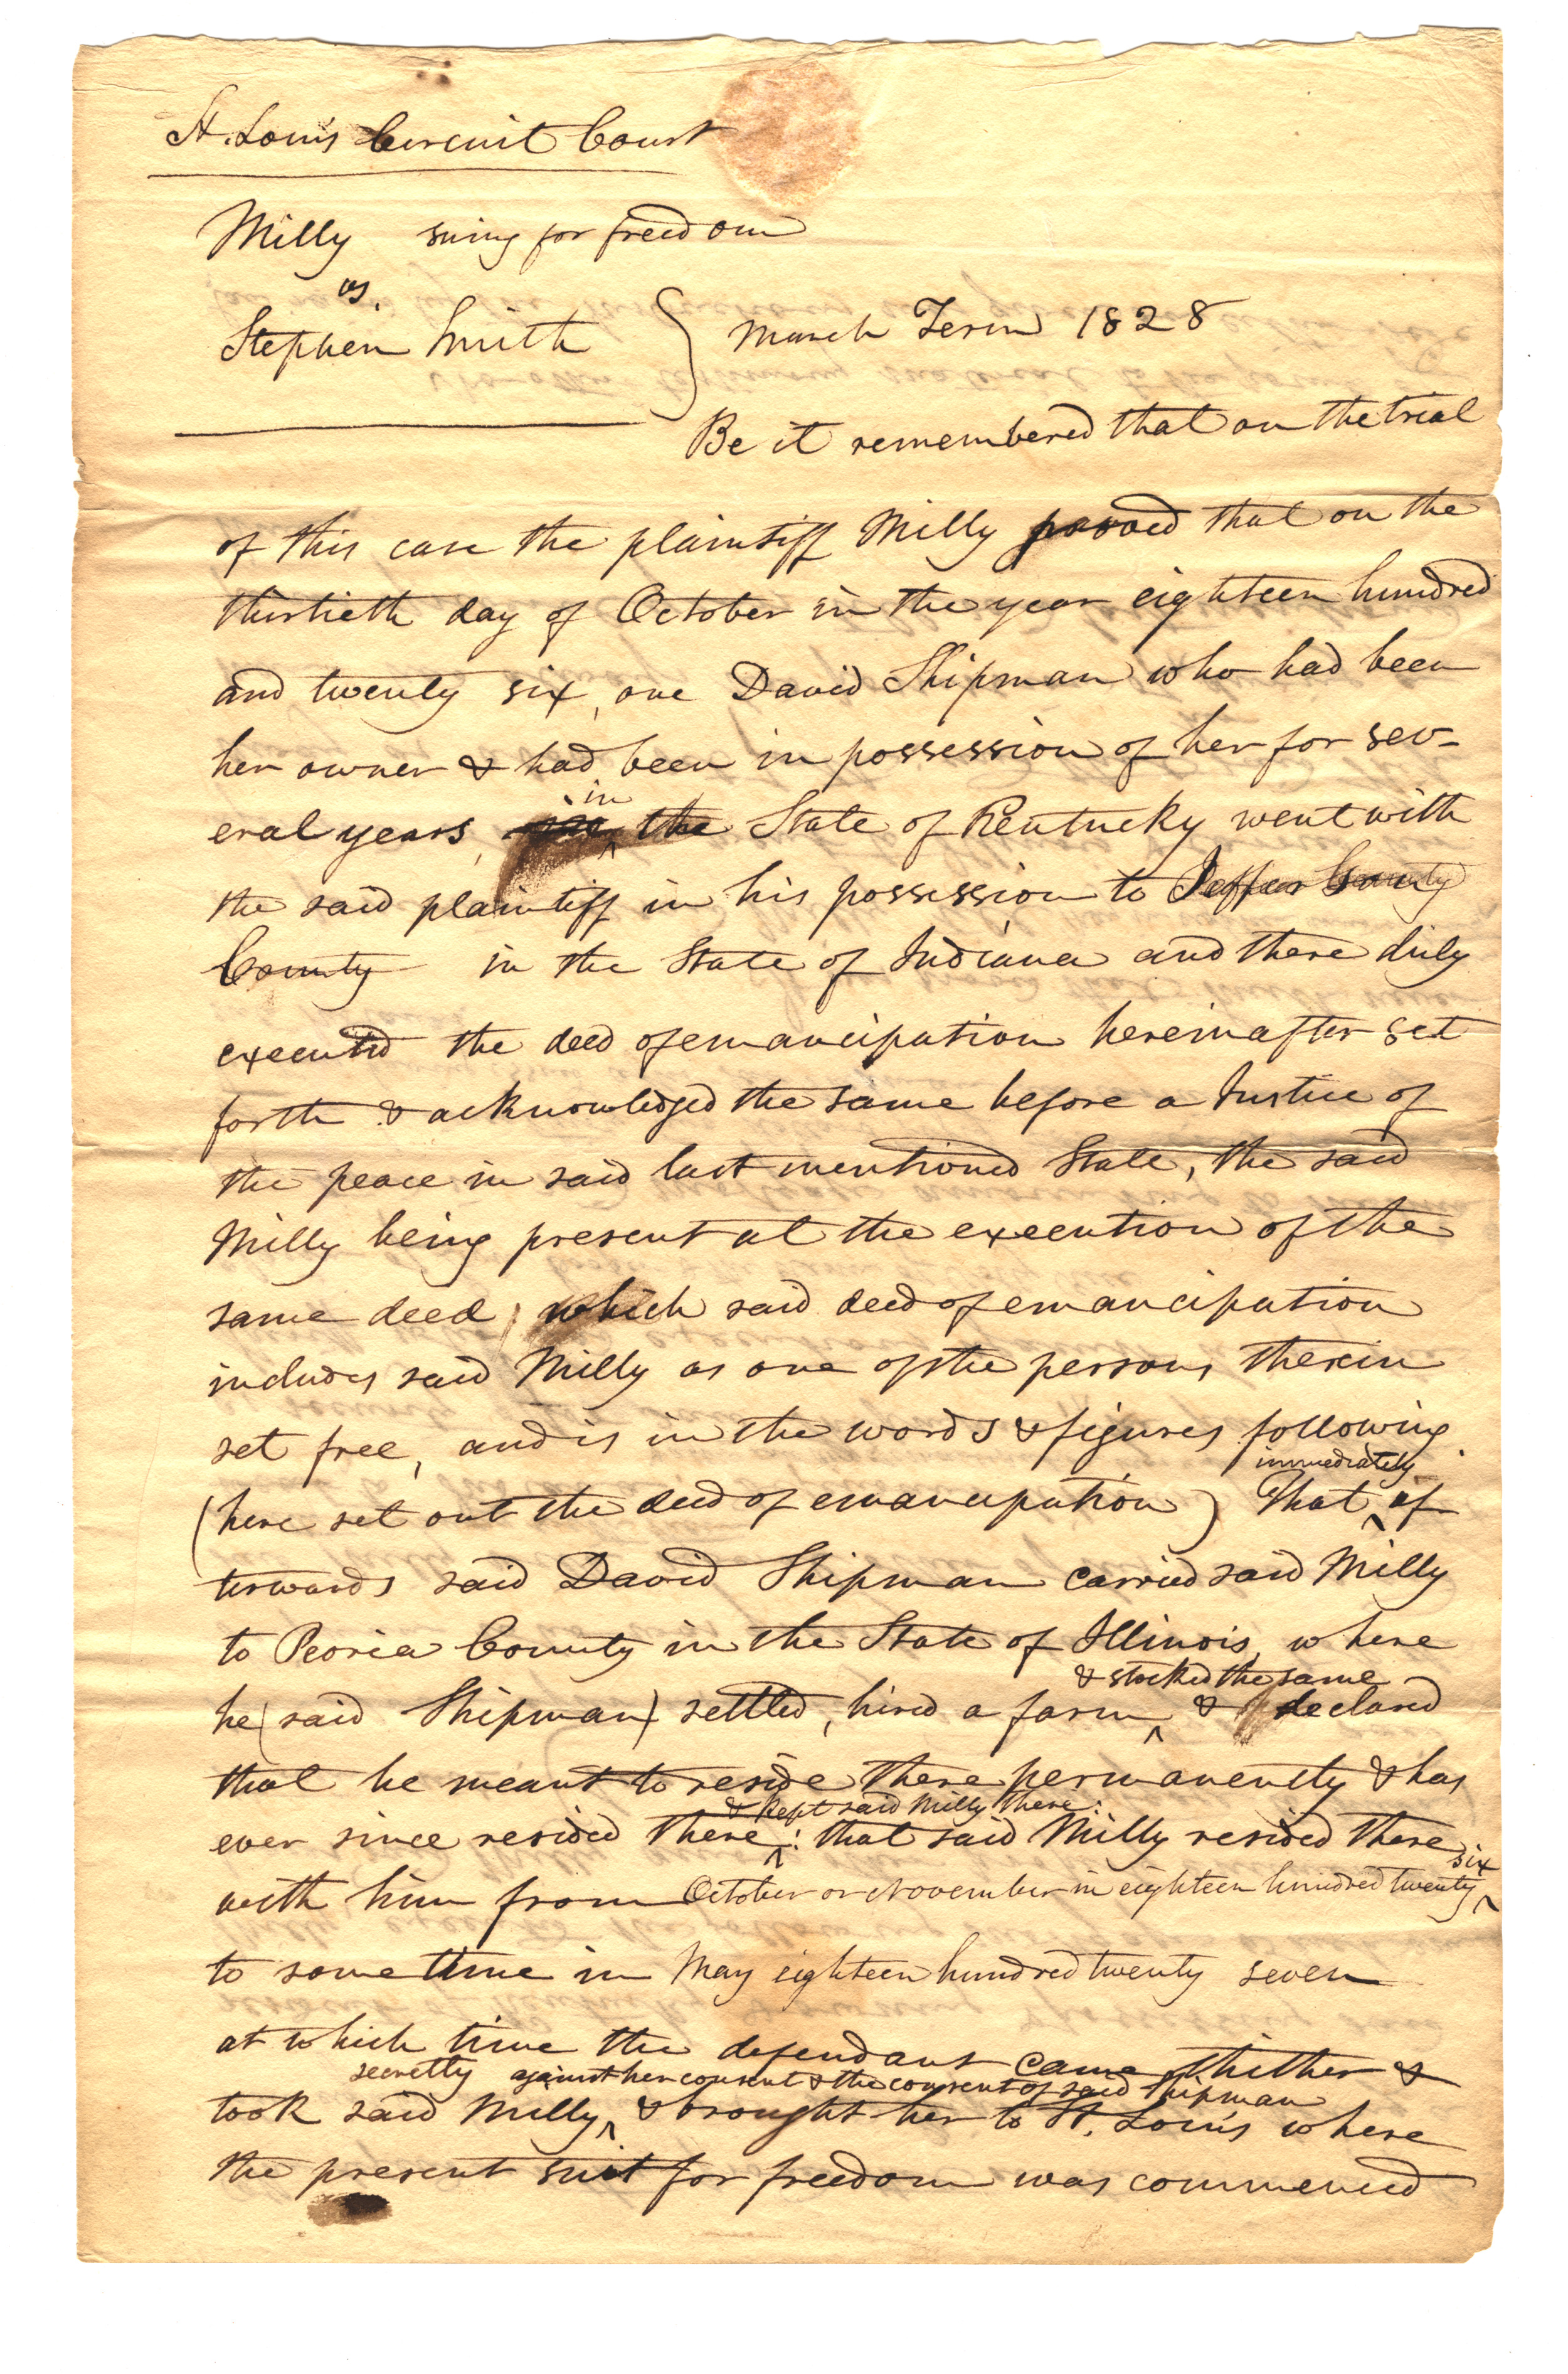 St. Louis Circuit Court
Milly suing for freedom
vs.
Stephen Smith } March Term 1828
Be it remembered that on the trial
of this case the plaintiff Milly proved that on the
thirtieth day of October in the year eighteen hundred
and twenty six, one David Shipman who had been
her owner & had been in possession of her for sev-
in
eral years, the State of Kentucky went with
the said plaintiff in his possession to
County in the State of Indiana and there duly
executed the deed of emancipation hereinafter set
forth & acknowledged the same before a Justice of
the peace in said last mentioned State, the said
Milly being present at the execution of the
same deed, which said deed of emancipation
includes said Milly as one of the persons therein
set free, and is in the words & figures following
immediately
(here set out the deed of emancipation) That af-
terwards said David Shipman carried said Milly
to Peoria County in the State of Illinois, where
& stocked the same
he (said Shipman) settled, hired a farm & declared
that he meant to reside there permanently & has
& kept said Milly there:
ever since resided there: that said Milly resided there
six
with him from October or November in eighteen hundred twenty
to some time in May eighteen hundred twenty seven
at which time the defendant came thither &
secretly against her consent & the consent of said Shipman
took said Milly, & brought her to St. Louis where
the present suit for freedom was commenced